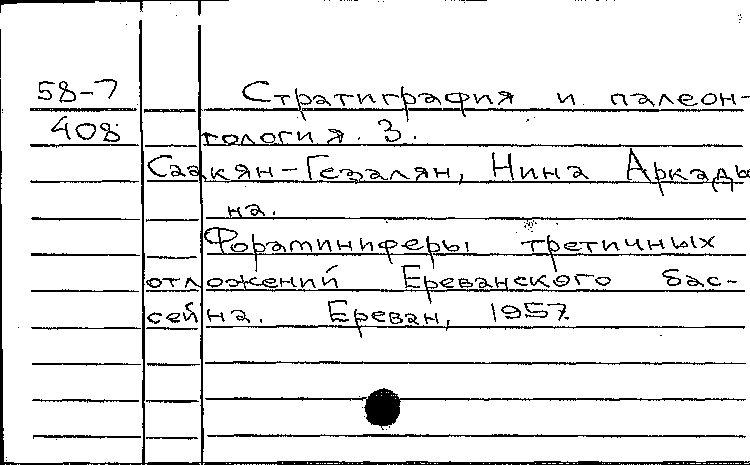 58-7 Стратиграфия и палеон-
408 тология. 3.
Саакян-Гезалян, Нина Аркадь
на.
Фораминиферы третичных
отложений Ереванского бас-
сейна. Ереван, 1957.